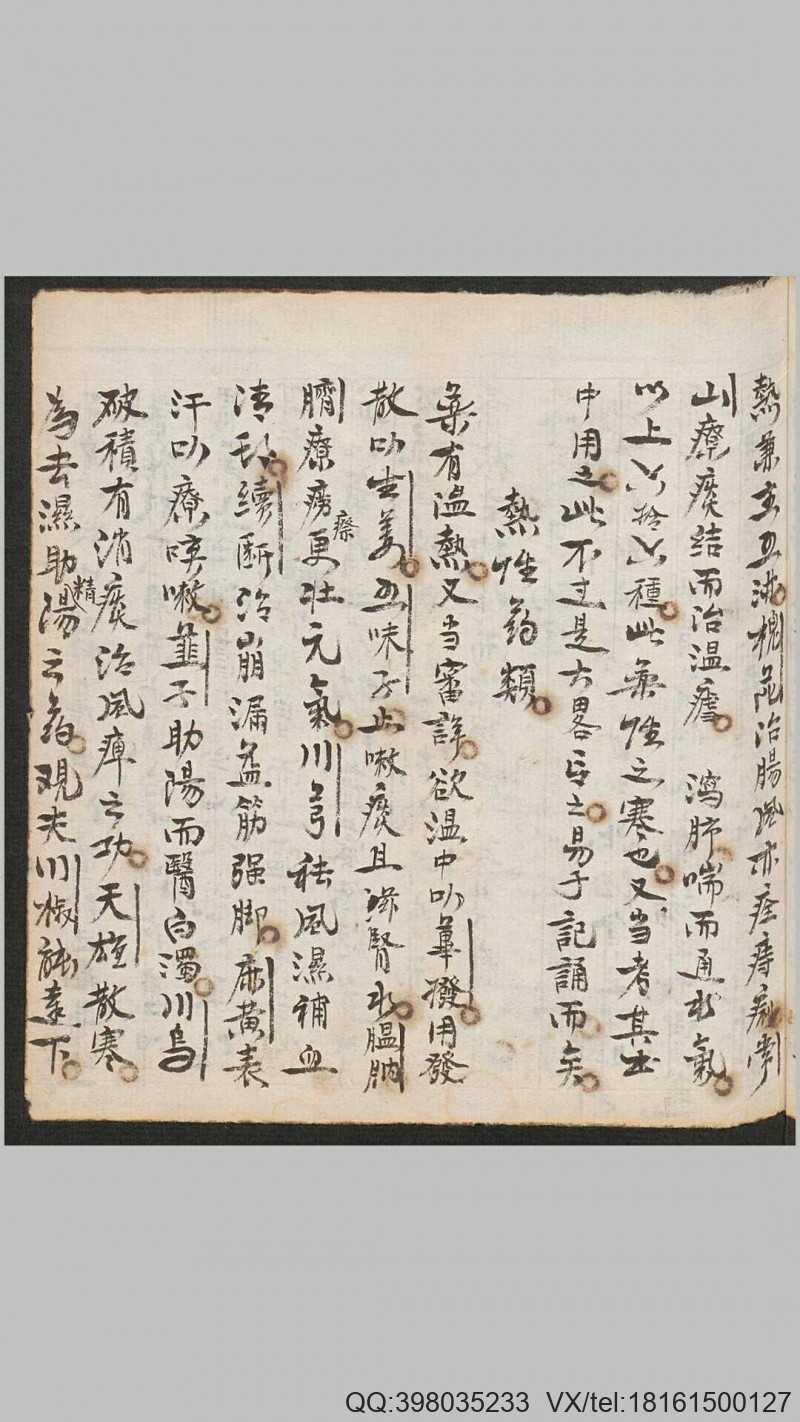 熱兼主五淋槐花治腸風亦痊痔痢常
山療痰结而治温瘧 瀉肺喘而通水氣
以上六拾六種此藥性之寒也又当考其出
中用之此不过是大畧言之易于記誦而矣
熱性药類
藥有温熱又当審詳欲温中叻蓽撥用發
散叻生姜五味子止嗽痰且滋腎水腽肭
臍療癆瘵更壯元氣川芎祛風濕補血
清头续断治崩漏益筋强脚麻黄表
汗叻療咳嗽韮子助陽而醫白濁川烏
破積有消痰治風痺之功天雄散寒
為去濕助精陽之药观夫川椒能達下
QQ:398035233 VX/tel:18161500127